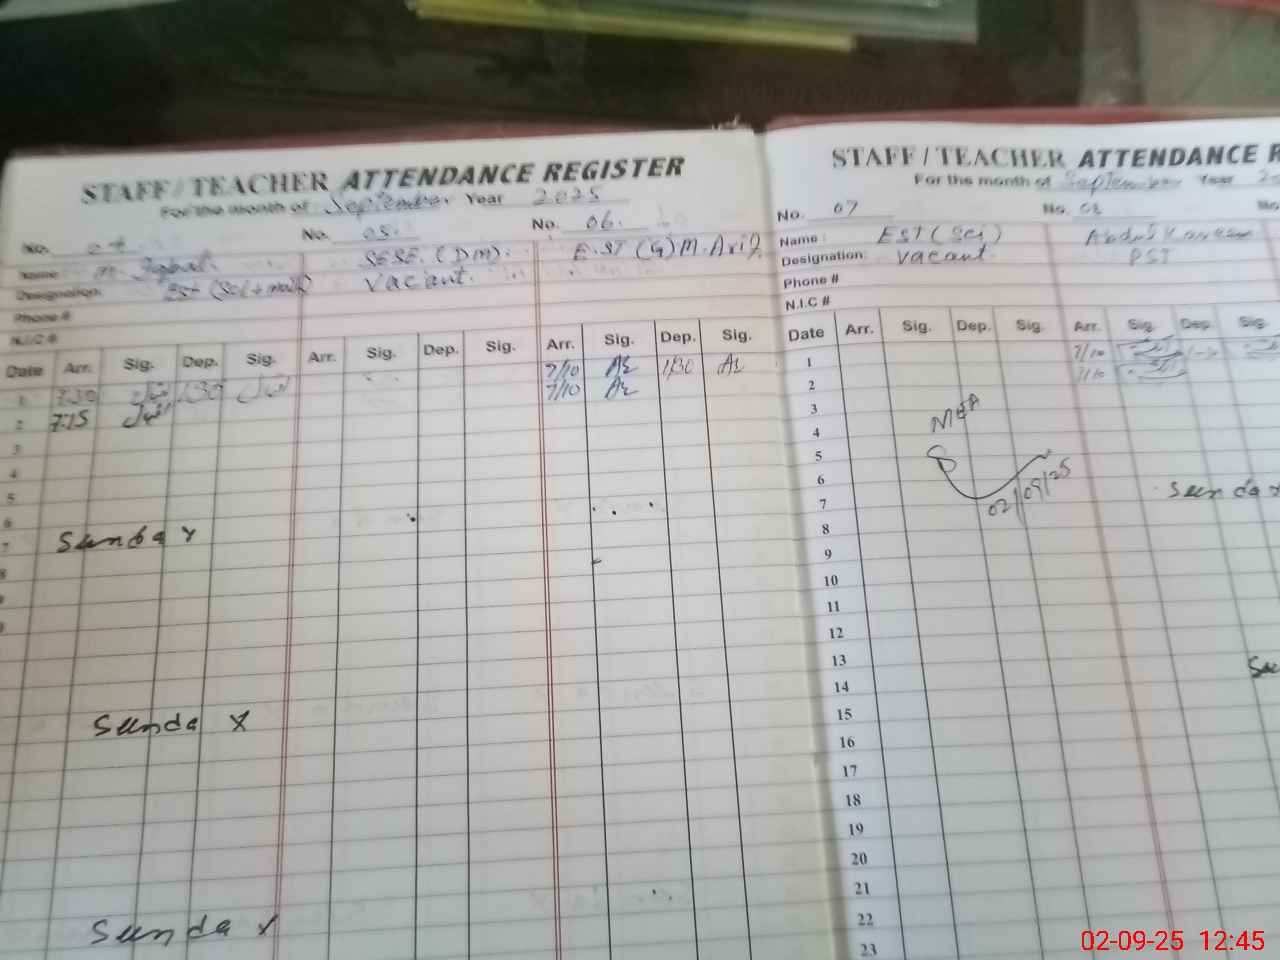 STAFF / TEACHER ATTENDANCE REGISTER
For the month of September Year 2025
No. 04 No. 05. No. 06.
Name M. Iqbal. SESE. (DM). E.ST (G) M. Arif
Designation: Est (Sci + math) Vacant.
Phone #
N.I.C #
Date Arr. Sig. Dep. Sig. Arr. Sig. Dep. Sig. Arr. Sig. Dep. Sig.
1 7:10 1:30 7/10 1/30
2 7:15 7/10
3
4
5
6
7 Sunday
8
9
Sunday
Sunday
STAFF / TEACHER ATTENDANCE R
For the month of September Year
No. 07 No. 08 No.
Name: EST (Sci) Abdul
Designation: Vacant. PST
Phone #
N.I.C #
Date Arr. Sig. Dep. Sig. Arr. Sig. Dep. Sig.
1 7/10
2 7/10
3
4 MEA
5
6
7 02/09/25 Sunday
8
9
10
11
12
13
14
15
16
17
18
19
20
21
22
23
02-09-25 12:45